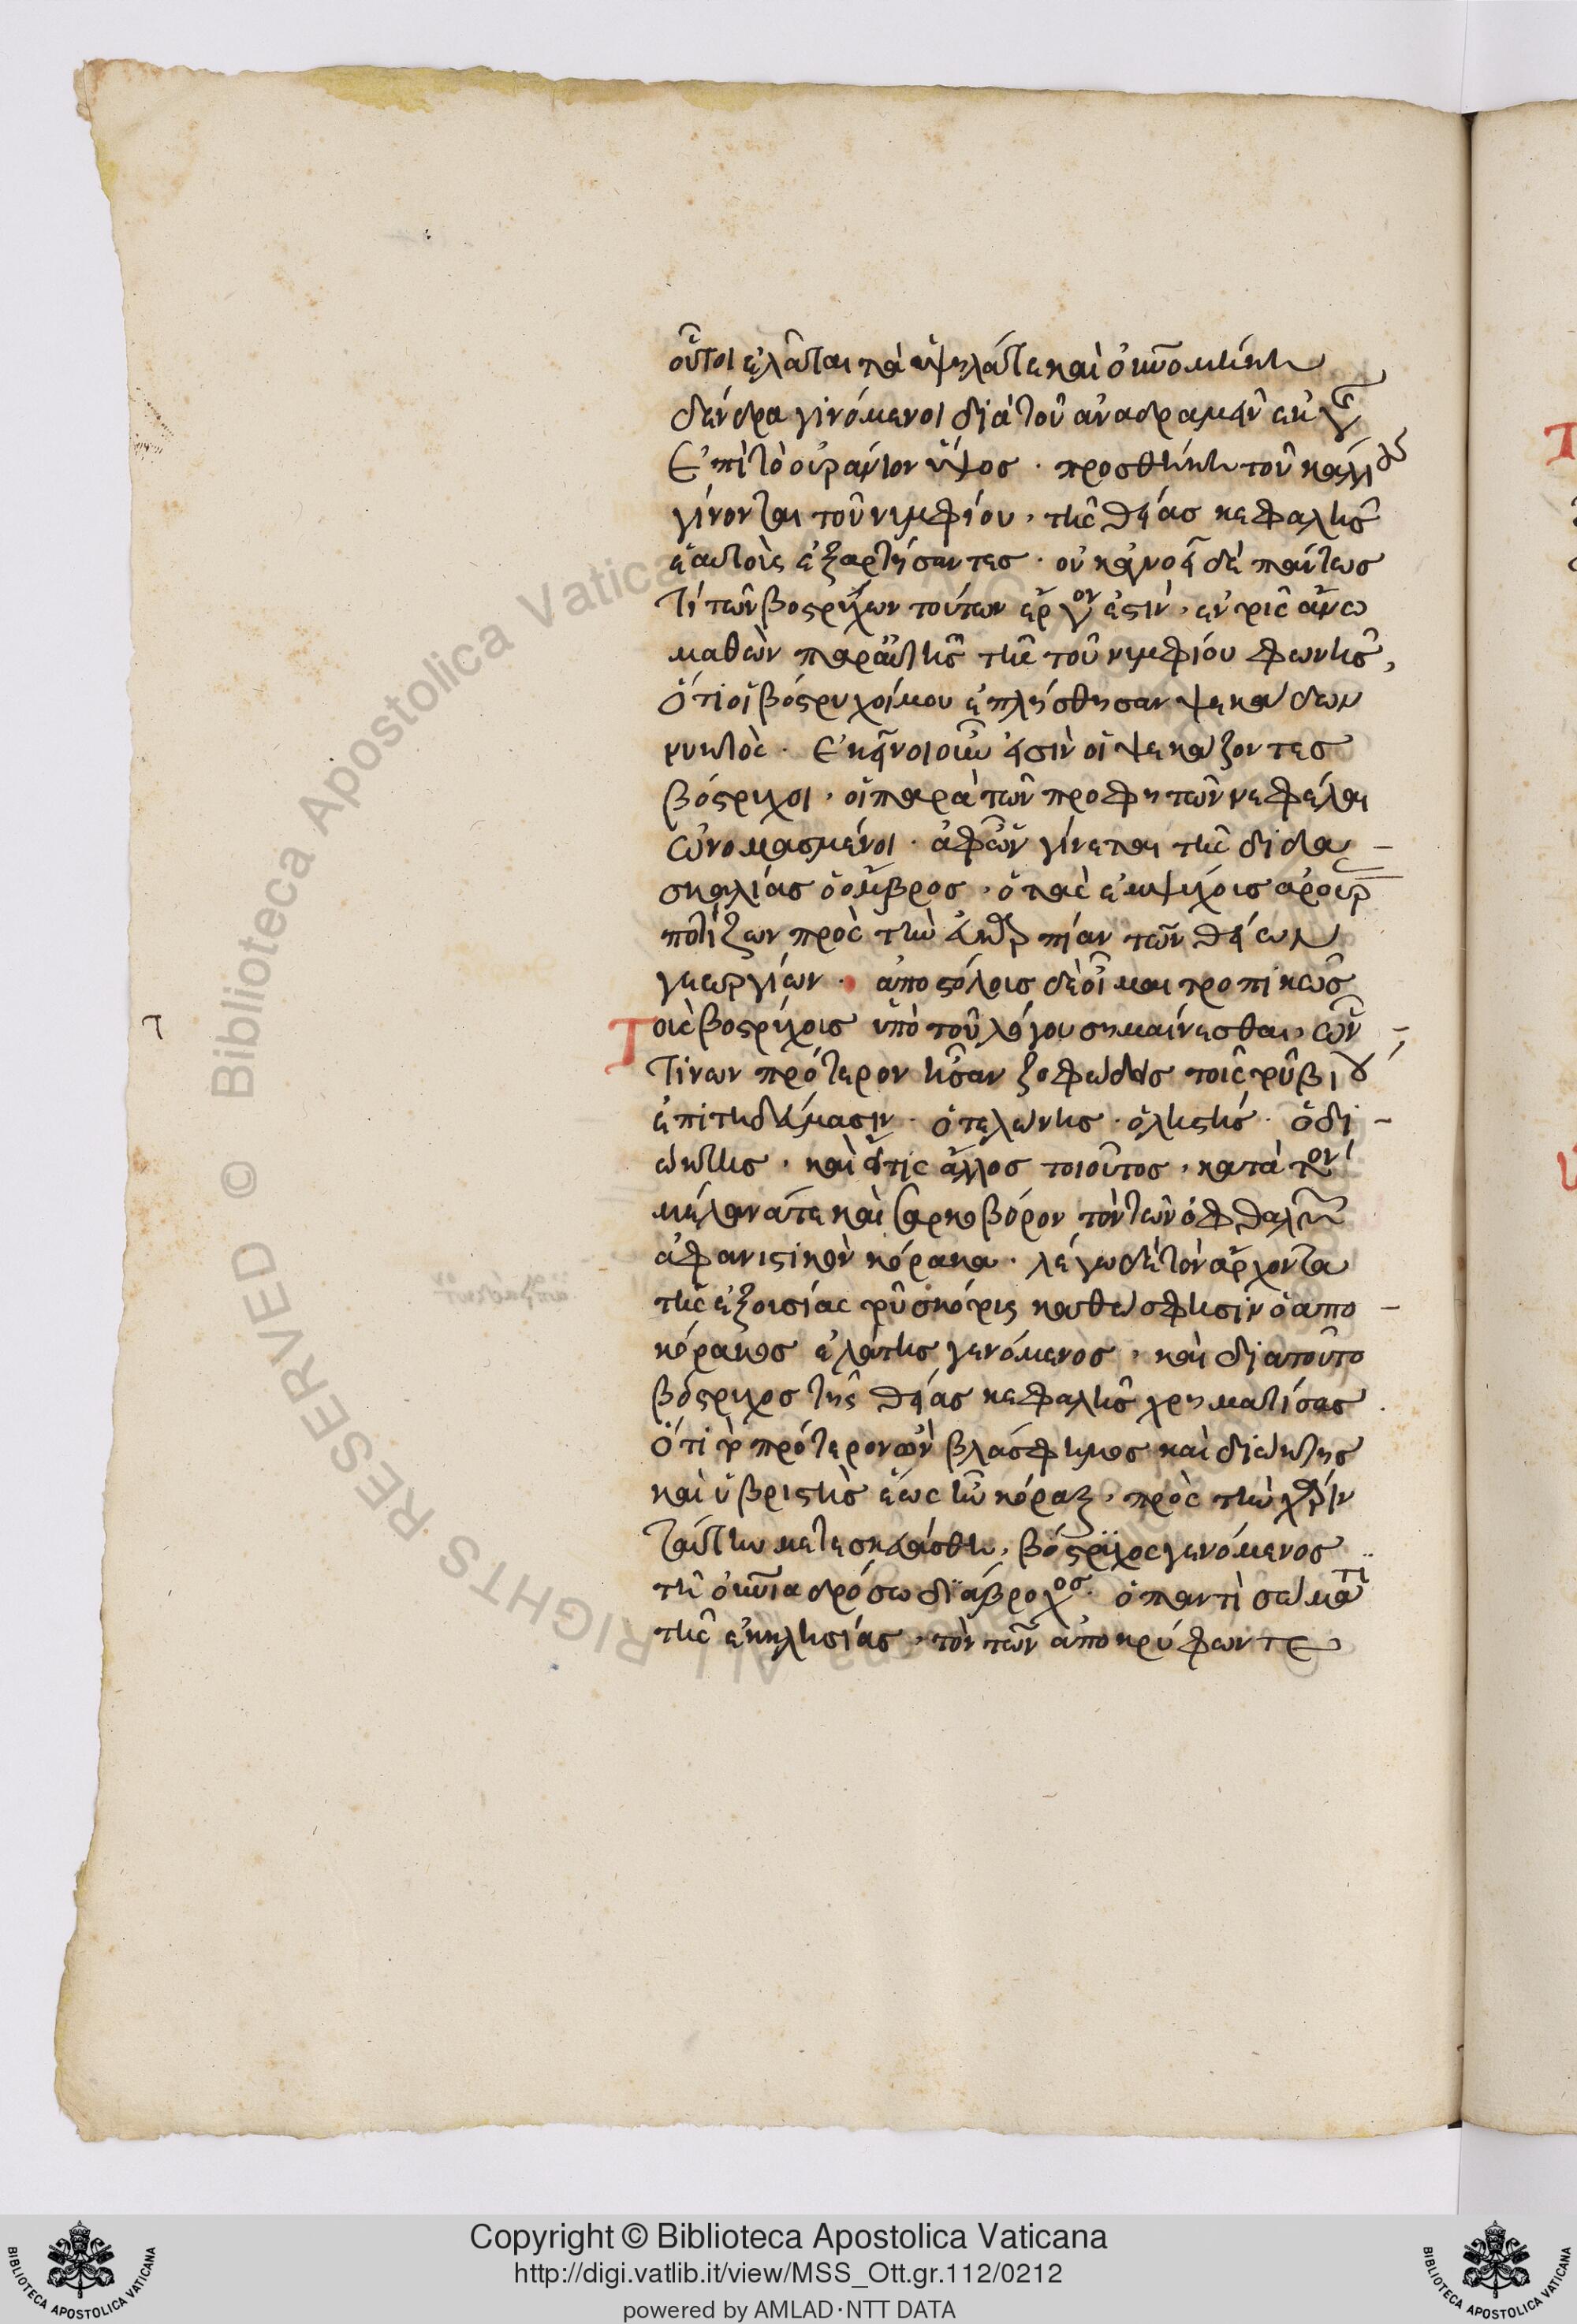 οὗτοι ἐλάται τὰ ὑψηλά τε καὶ οὐρανομήκη
δένδρα γινόμενοι διὰ τοῦ ἀναδραμεῖν ἐκ γῆς
ἐπὶ τὸ οὐράνιον ὕψος · προσθήκη τοῦ κάλλους
γίνονται τοῦ νυμφίου, τῆς θείας κεφαλῆς
ἑαυτοὺς ἐξαρτήσαντες · οὐκ ἀγνοεῖ δὲ πάντως
τί τῶν βοστρύχων τούτων ἔργον ἐστὶν, ἐν τοῖς ἄνω
μαθὼν παρ' αὐτῆς τῆς τοῦ νυμφίου φωνῆς,
ὅτι οἱ βόστρυχοί μου ἐπλήσθησαν ψεκάδων
νυκτὸς · ἐκεῖνοι οὖν εἰσὶν οἱ ψεκάζοντες
βόστρυχοι, οἱ παρὰ τῶν προφητῶν νεφέλαι
ὠνομασμένοι · ἀφ' ὧν γίνεται τῆς διδα
σκαλίας ὁ ὄμβρος, ὁ τὰς ἐμψύχοις ἀρούρ
ποτίζων πρὸς τὴν εὐκαρπίαν τῶν θείων
γεωργίων · ἀποστόλοις δὲ οἶμαι τροπικῶς
Τοῖς βοστρύχοις ὑπὸ τοῦ λόγου σημαίνεσθαι, ὧν
τινων πρότερον ἦσαν ζοφώδεις τοῖς τοῦ βίου
ἐπιτηδεύμασιν · ὁ τελώνης · ὁ λῃστής · ὁ δι
ώκτης, καὶ εἴ τις ἄλλος τοιοῦτος, κατὰ τὸν
μέλανά τε καὶ σαρκοβόρον τὸν τῶν ὀφθαλμῶν
ἀφανιστικὸν κόρακα · λέγω δὲ τὸν ἄρχοντα
τῆς ἐξουσίας τοῦ σκότους καθώς φησιν ὁ ἀπο
κόρακος ἐλάτης γενόμενος, καὶ διὰ τοῦτο
βόστρυχος τῆς θείας κεφαλῆς χρηματίσας ·
ὅτι τὸ πρότερον ὢν βλάσφημος καὶ διώκτης
καὶ ὑβριστὴς ἕως ἦν κόραξ, πρὸς τὴν χάριν
ταύτην μετεσκευάσθη, βόστρυχος γενόμενος
τῇ οὐρανίᾳ δρόσῳ διάβροχος · ὁ παντὶ σώματι
τῆς ἐκκλησίας, τὸν τῶν ἀποκρύφων τε
Copyright © Biblioteca Apostolica Vaticana
http://digi.vatlib.it/view/MSS_Ott.gr.112/0212
powered by AMLAD·NTT DATA